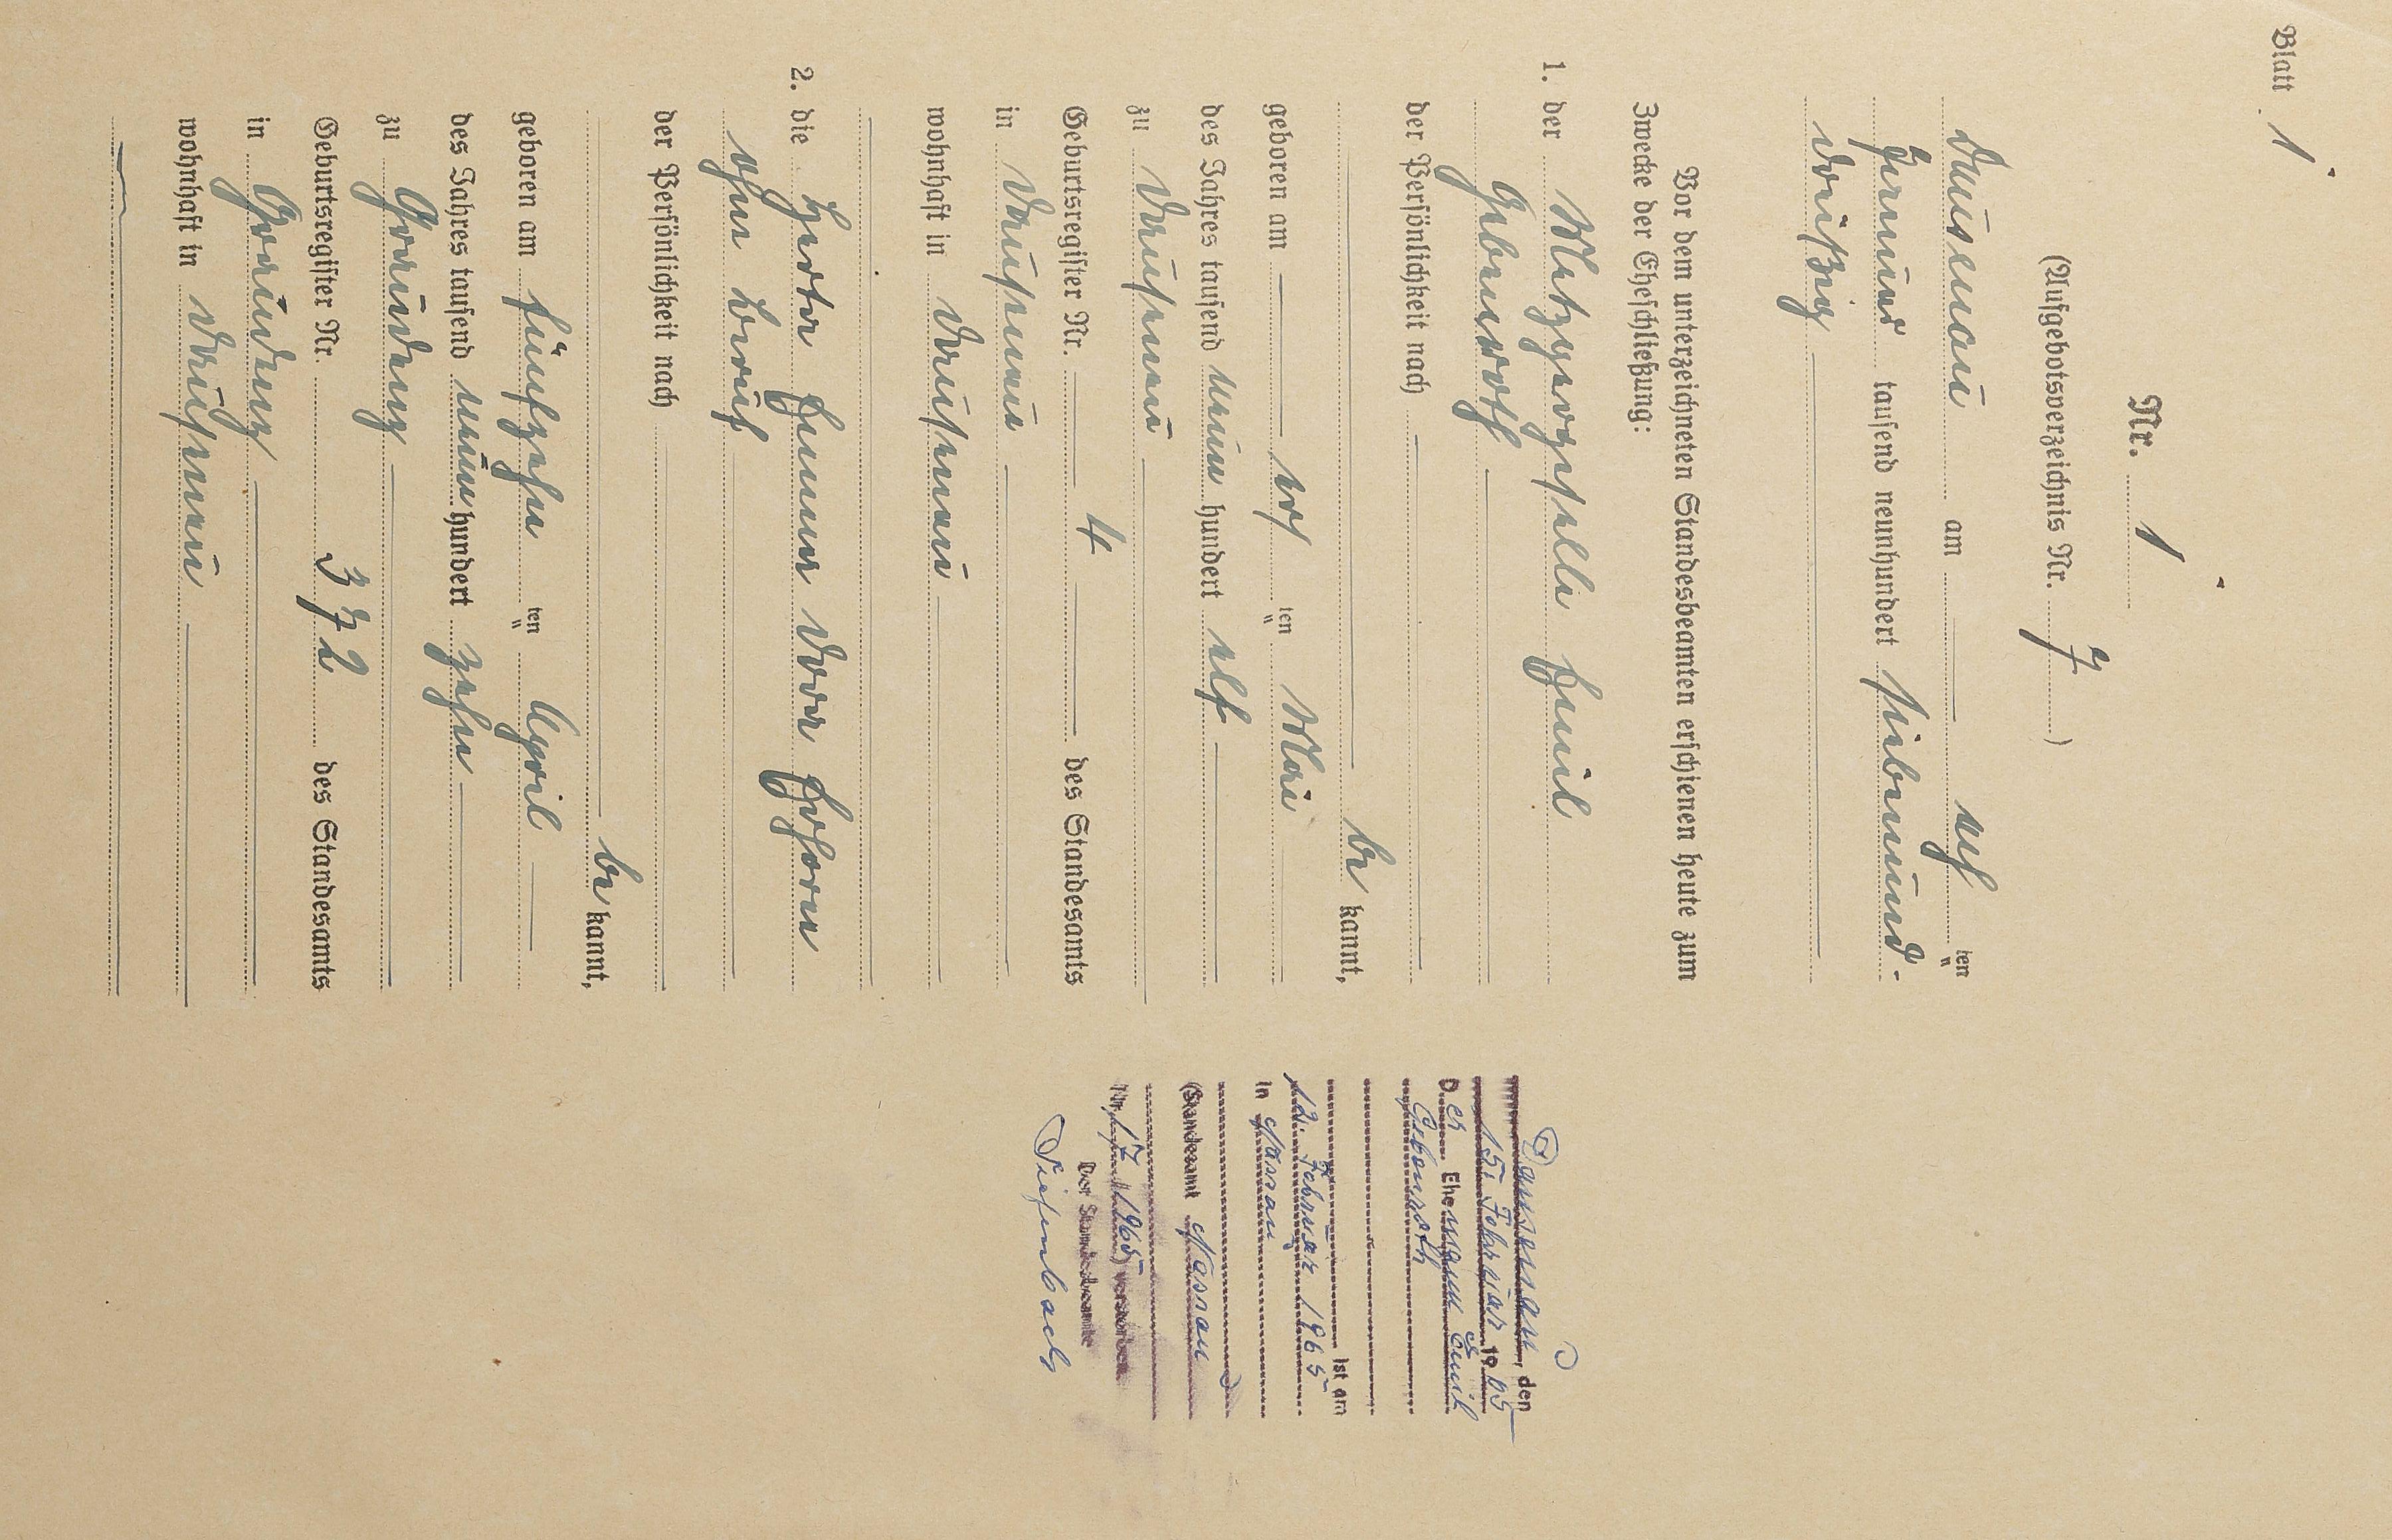 Blatt 1
Nr. 1
(Aufgebotsverzeichnis Nr. 7)
Dausenau am ten
Januar tausend neunhundert siebenund-
dreißig
Vor dem unterzeichneten Standesbeamten erschienen heute zum
Zwecke der Eheschließung:
1. der Metzgergeselle Emil
Gebenroth
der Persönlichkeit nach
be kannt,
geboren am ten Mai
des Jahres tausend neun hundert elf
zu Dausenau
Geburtsregister Nr. 4 des Standesamts
in Dausenau
wohnhaft in Dausenau
2. die Emma Dora
ohne Beruf
der Persönlichkeit nach
be kannt,
geboren am fünfzehn ten April
des Jahres tausend neun hundert zehn
zu Graudenz
Geburtsregister Nr. 372 des Standesamts
in Graudenz
wohnhaft in Dausenau
Dausenau, den
15. Februar 1965
Der Ehemann Emil
Gebenroth
ist am
12. Februar 1965
in Nassau
(Standesamt Nassau
Nr. 17/1965) verstorben
Der Standesbeamte
Tiefenbach